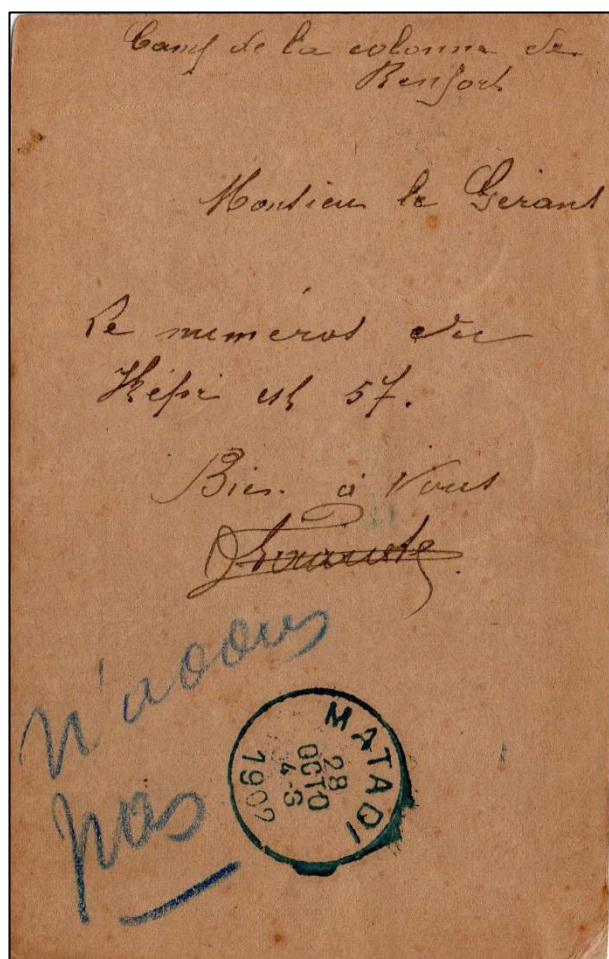 Camp de la colonne de
Renfort
Monsieur le Gérant
Le numéros du
Képi est 57.
Bien à Vous
n'avons
pas
MATADI
28
OCTO
4-S
1902